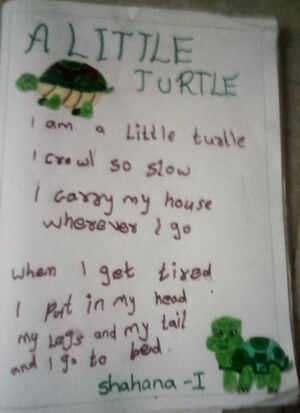 A LITTLE
TURTLE
I am a Little turtle
I crowl so slow
I carry my house
wherever I go
when I get tired
I put in my head
my Legs and my tail
and I go to bed.
shahana - I